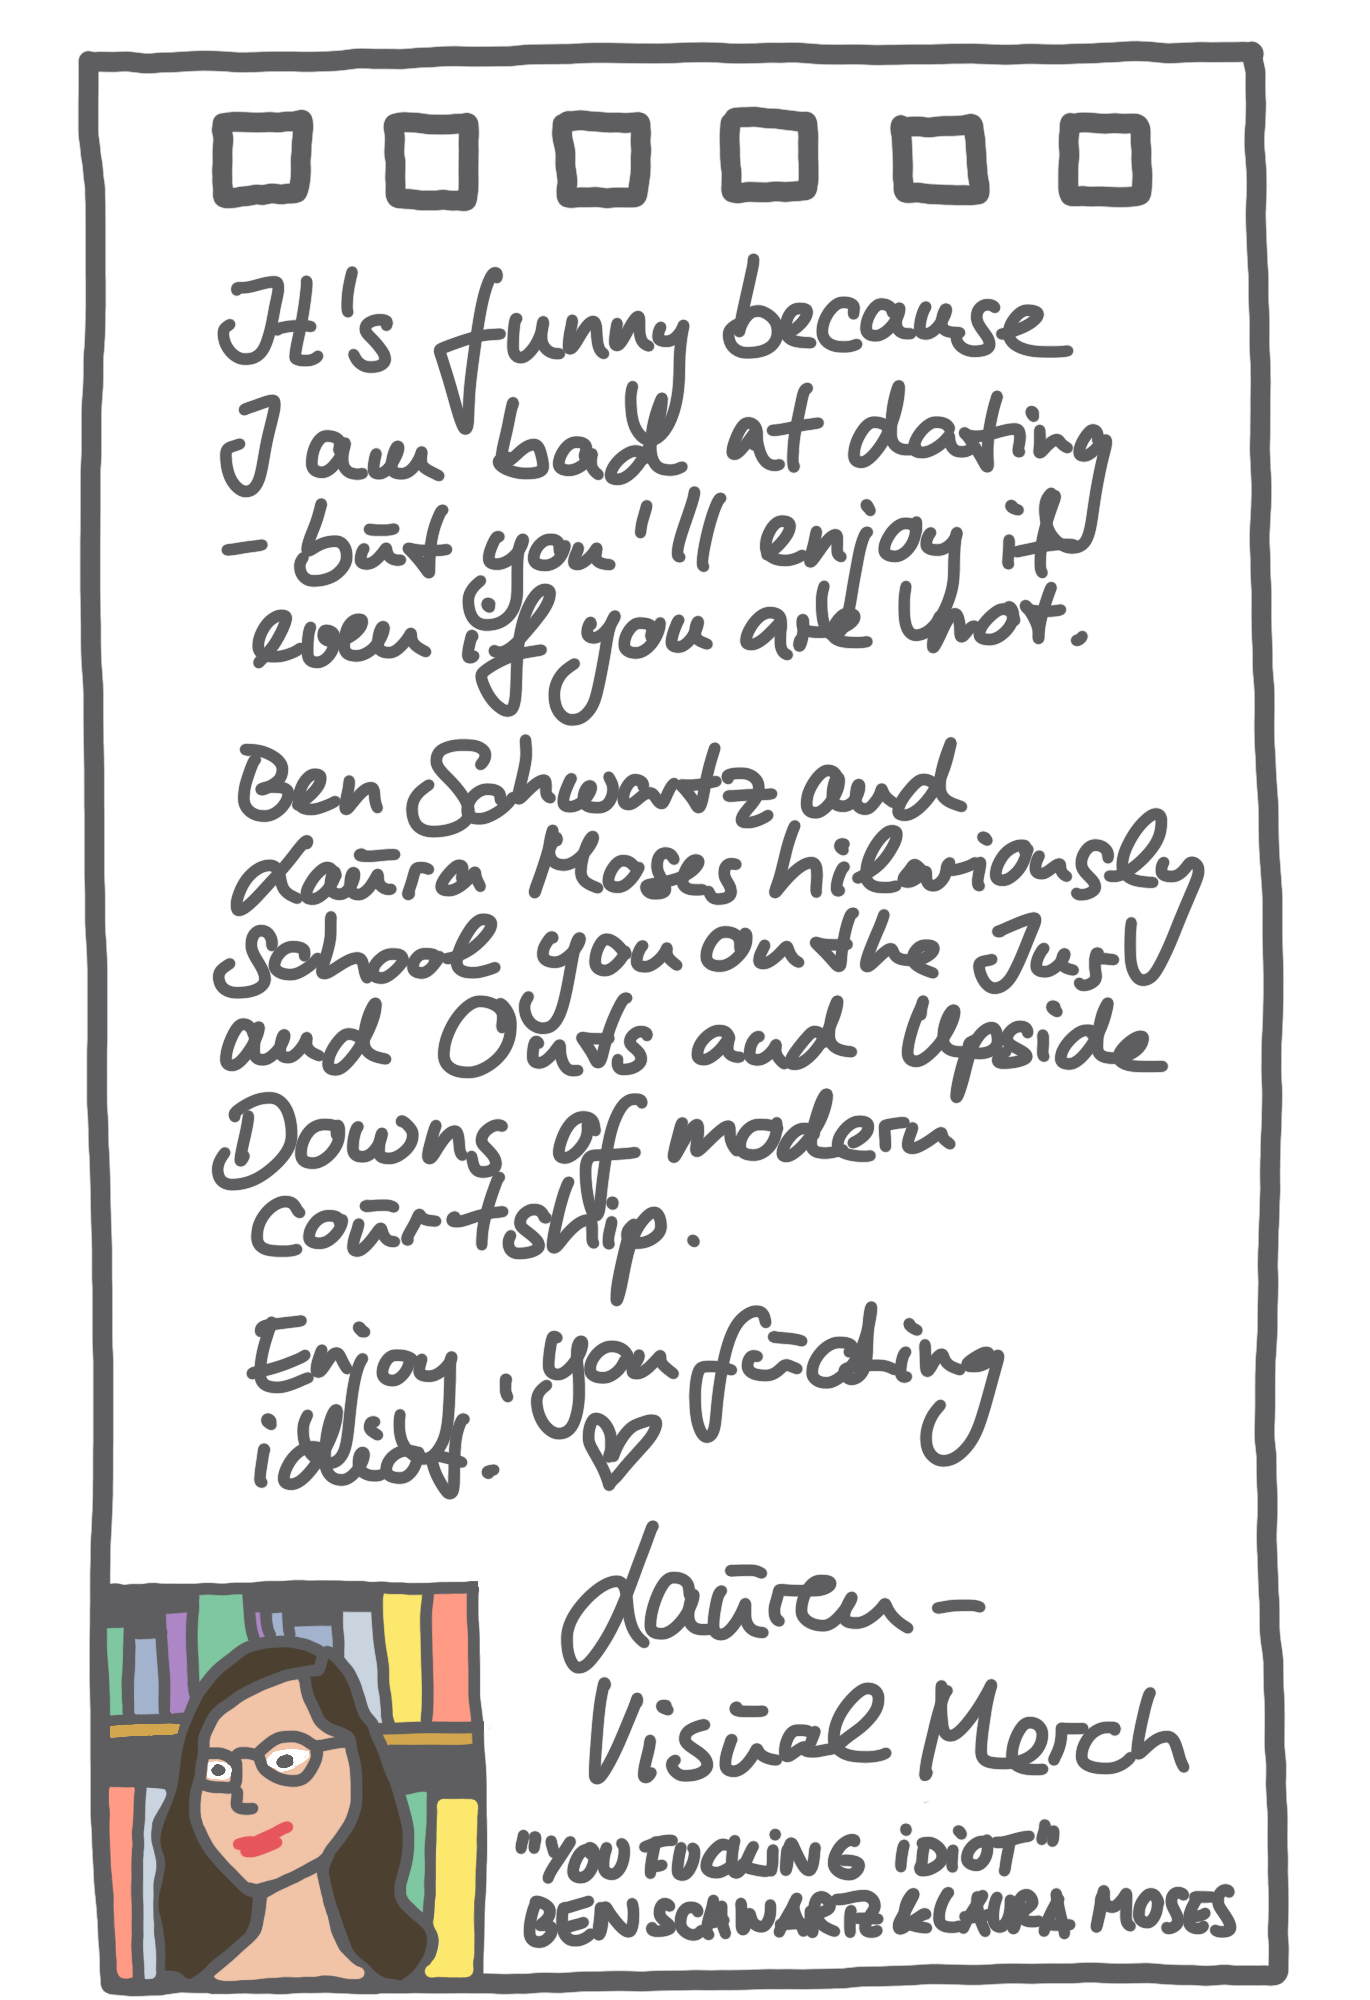 It's funny because
I am bad at dating
- but you'll enjoy it
even if you are not.
Ben Schwartz and
Laura Moses hilariously
school you on the Jus
and Outs and Upside
Downs of modern
courtship.
Enjoy, you fucking
idiot. ♡
Lauren -
Visual Merch
"YOU FUCKING IDIOT"
BEN SCHWARTZ & LAURA MOSES